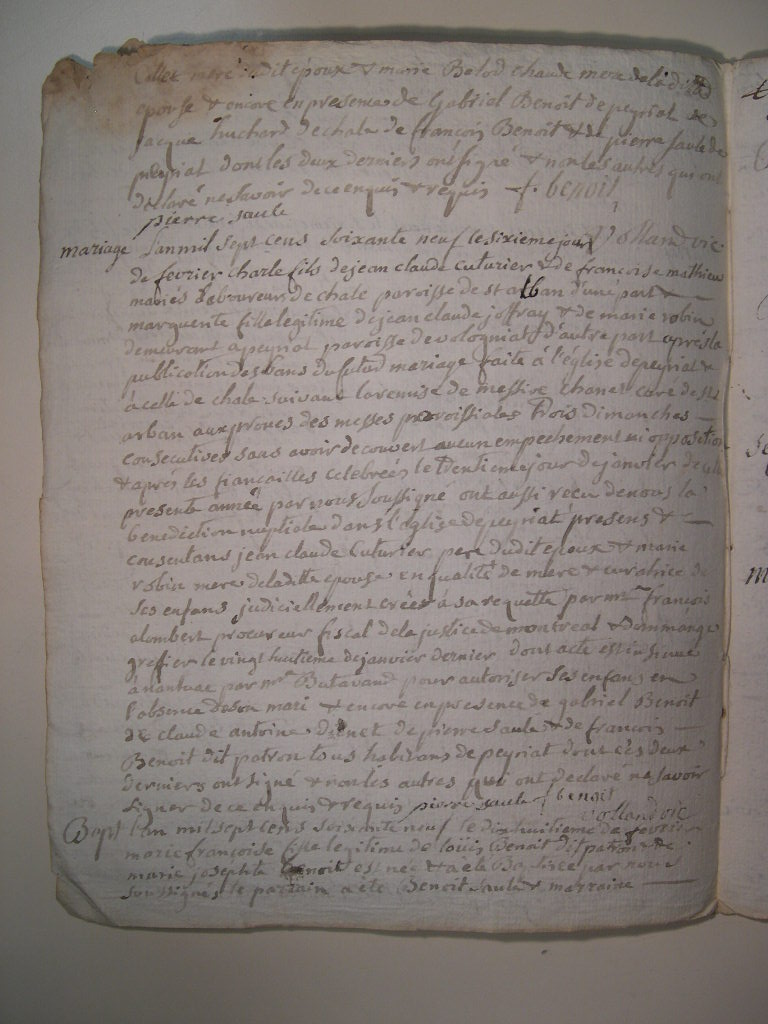 mere dudit epoux & marie Belod chaude mere de la ditte
epouse & encore en presence de Gabriel Benoit de peyriat de
jacque huchard de chale de francois Benoit & de pierre saule de
peyriat dont les deux derniers ont signé & non les autres qui ont
declaré ne savoir de ce enquis & requis f. benoit
pierre saule
mariage L'an mil sept cens soixante neuf le sixieme jour Volland vic
de fevrier charle fils de jean claude Cuturier & de francoise mathieu
mariés laboureurs de chale paroisse de st alban d'une part &
marguerite fille legitime de jean claude joffray & de marie robin
demeurant a peyriat paroisse de volognat d'autre part après la
publication des bans du futur mariage faite à l'église de peyriat &
à celle de chale suivant la remise de messire chanel curé de st
arban aux prones des messes paroissiales trois dimanches
consecutives sans avoir decouvert aucun empechement ni opposition
& après les fiancailles celebrées le trentieme jour de janvier de la
presente année par nous soussigné ont aussi recu de nous la
benediction nuptiale dans l'église de peyriat présens &
consentans jean claude Cuturier pere dudit epoux & marie
robin mere de la ditte epouse en qualité de mere & curatrice de
ses enfans judiciellement créée à sa requette par mre francois
alombert procureur fiscal de la justice de montreal & dommange
grefier le vingt huitieme de janvier dernier dont acte est insinué
à nantua par mr Butavand pour autoriser ses enfans en
l'absence de son mari & encore en presence de gabriel Benoit
de claude antoine de pierre saule & de francois
Benoit dit patron tous habitans de peyriat dont les deux
derniers ont signé & non les autres qui ont declaré ne savoir
signer de ce enquis & requis pierre saule f benoit
Volland vic
Bapt L'an mil sept cens soixante neuf le dix huitieme de fevrier
marie francoise fille legitime de louis Benoit dit patron & de
marie josephte Benoit est née & a été Baptisée par nous
soussignés le parrain a été Benoit saule & marraine